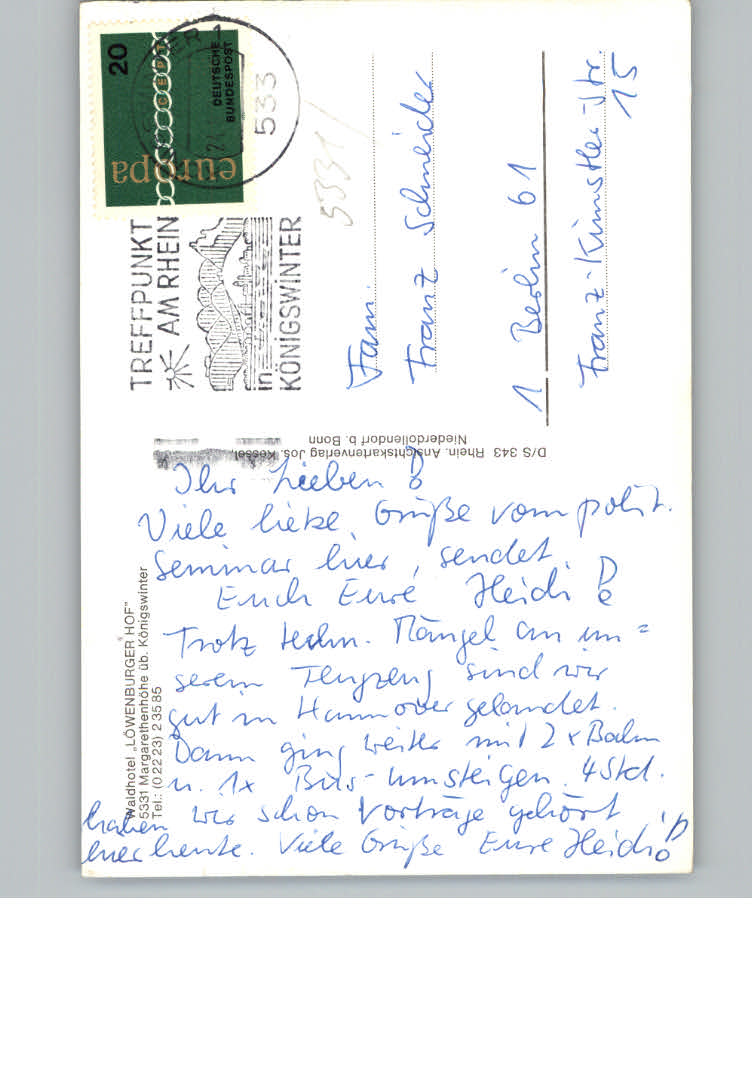 20
CEPT
DEUTSCHE
BUNDESPOST
europa
533
TREFFPUNKT
AM RHEIN
in
KÖNIGSWINTER
5331
Fam.
Franz Schneider
1 Berlin 61
Franz-Künstler-Str.
15
D/S 343 Rhein. Ansichtskartenverlag Jos. Kessel
Niederdollendorf b. Bonn
Waldhotel „LÖWENBURGER HOF"
5331 Margarethenhöhe üb. Königswinter
Tel.: (0 22 23) 2 35 85
Ihr Lieben!
Viele liebe Grüße vom polit.
Seminar hier, sendet
Euch Eure Heidi!
Trotz techn. Mängel an un=
serem Flugzeug sind wir
gut in Hannover gelandet.
Dann ging weiter mit 2x Bahn
u. 1x Bus-Umsteigen. 4 Std.
haben wir schon Vorträge gehört
hier heute. Viele Grüße Eure Heidi!